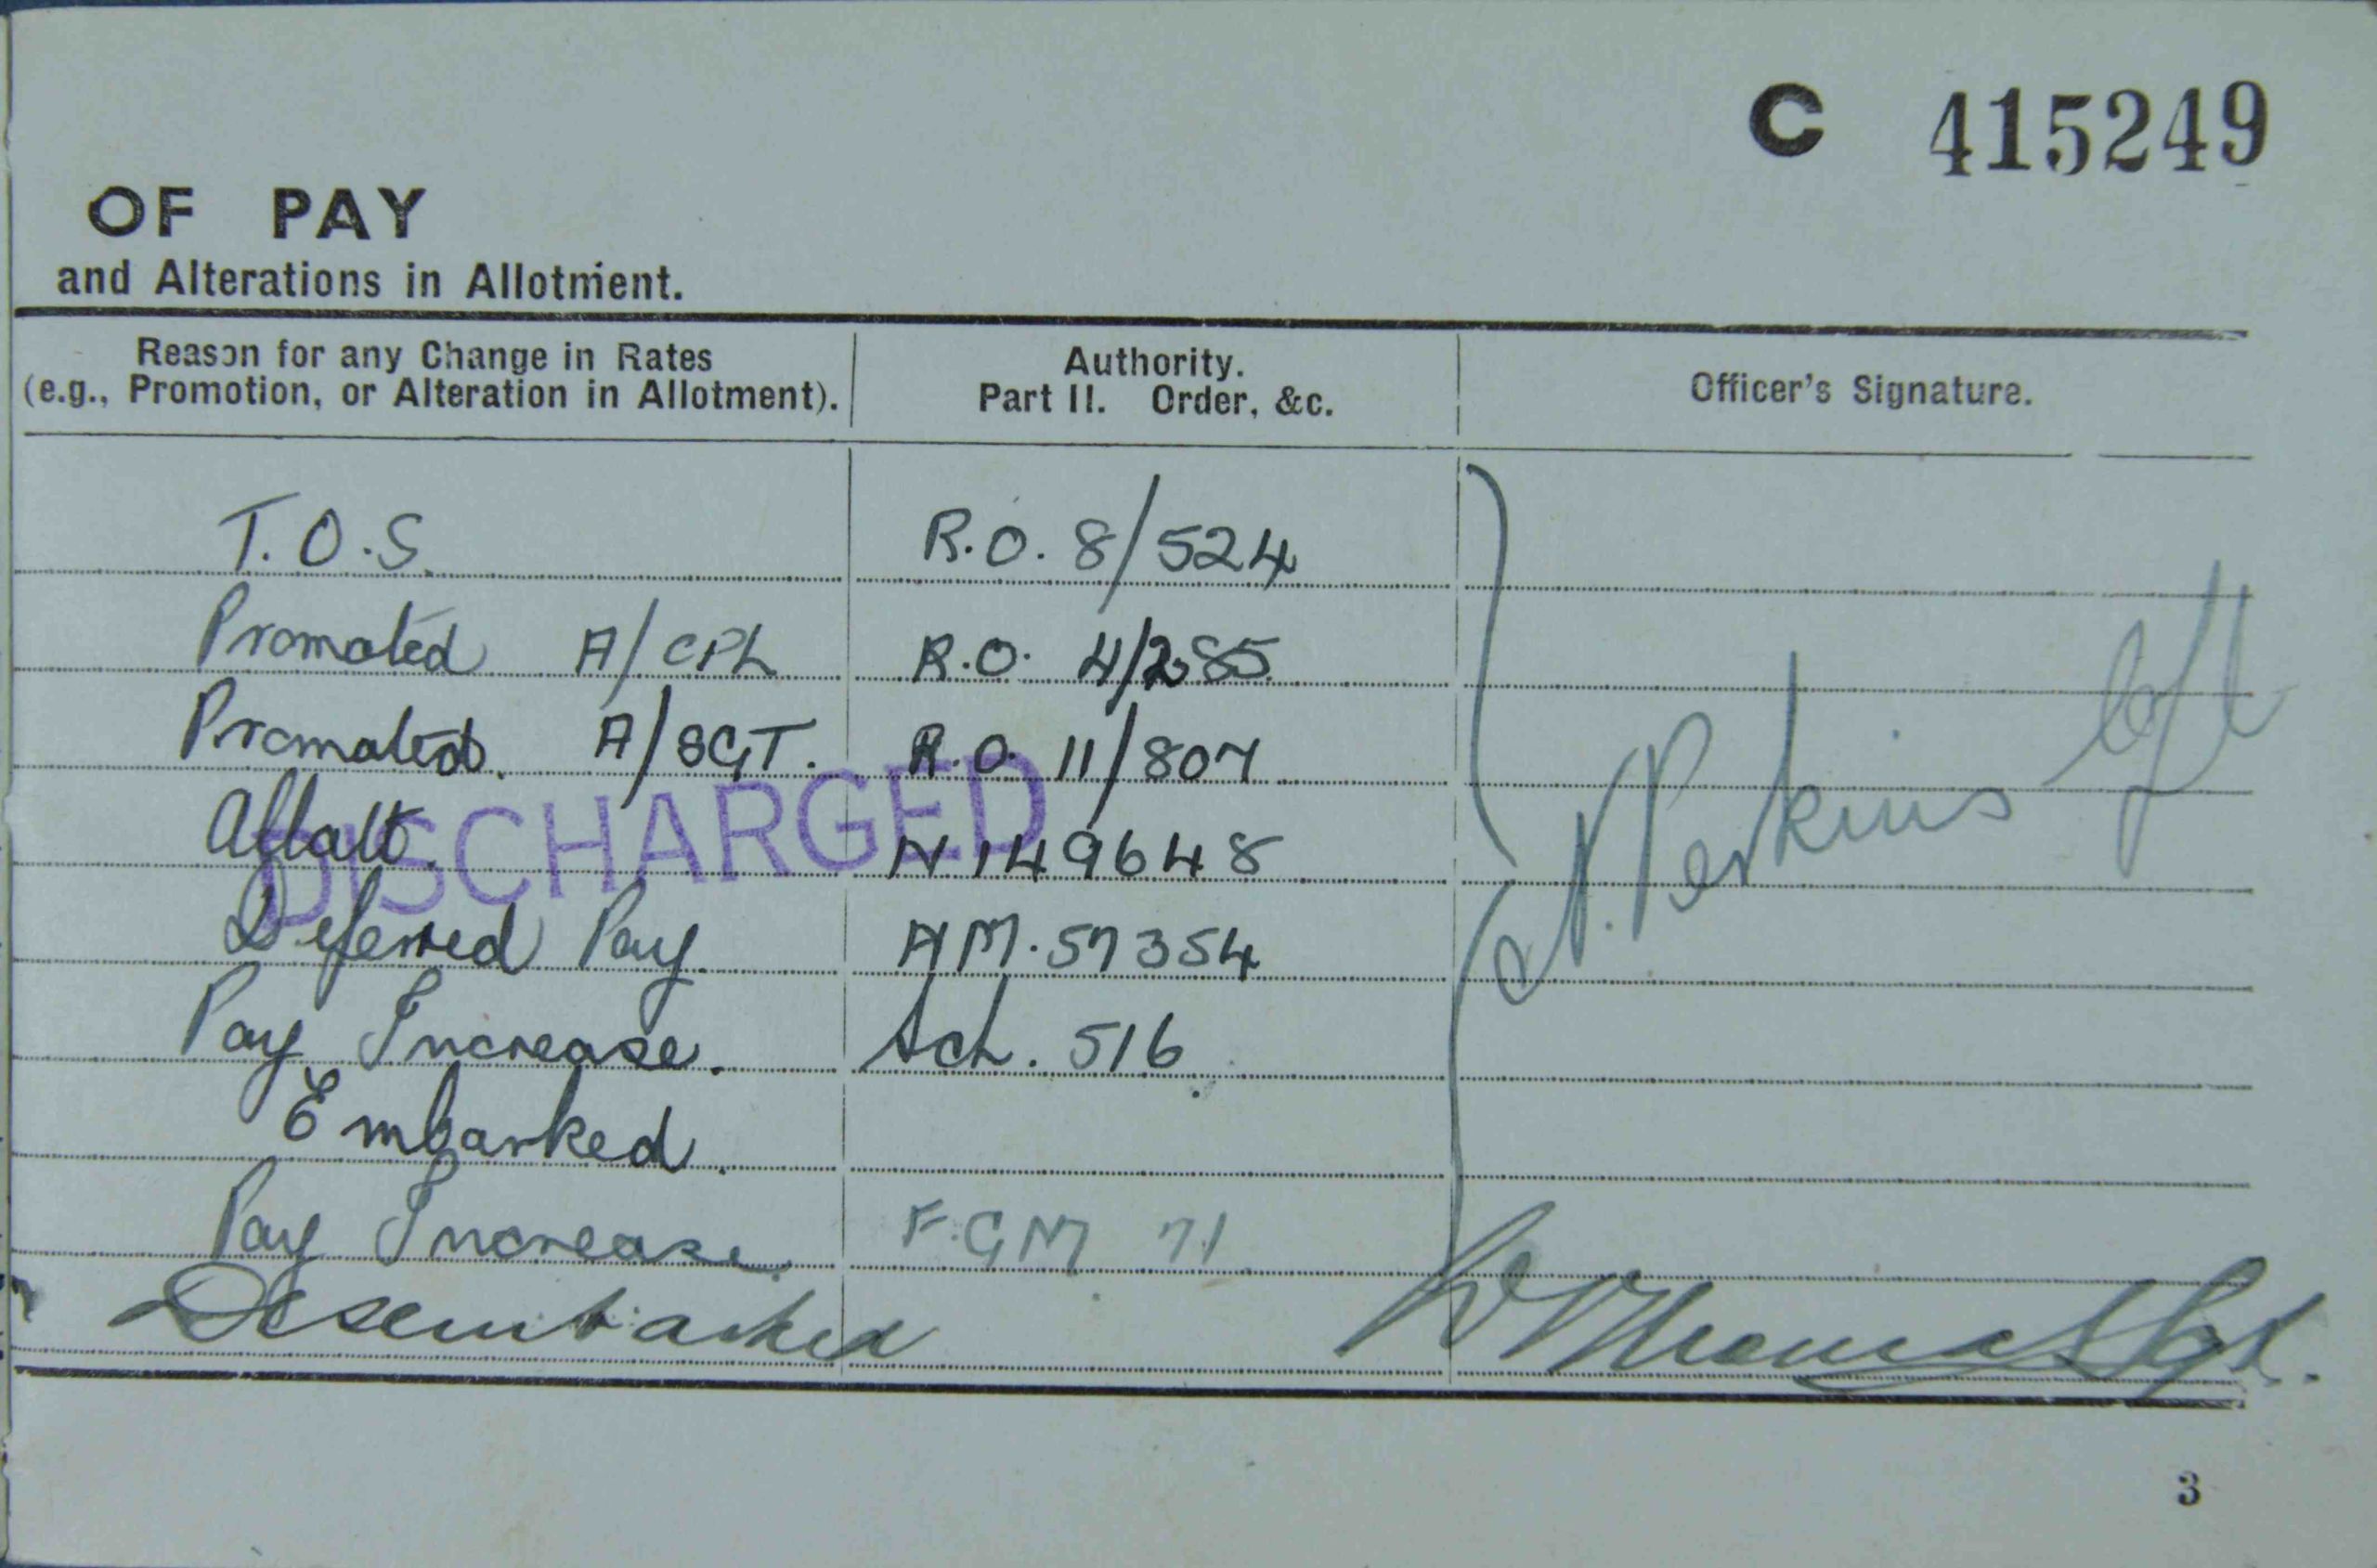 C 415249
OF PAY
and Alterations in Allotment.
Reason for any Change in Rates
(e.g., Promotion, or Alteration in Allotment).
Authority.
Part II. Order, &c.
Officer's Signature.
T.O.S. R.O. 8/524
Promoted A/CPL R.O. 4/285
Promoted. A/SGT. R.O. 11/807
Allott. N 149648
DISCHARGED
Deferred Pay AM. 57354
Pay Increase. Sch. 516
N. Perkins
Embarked.
Pay Increase. F.G.M 71.
Disembarked Sgt.
3